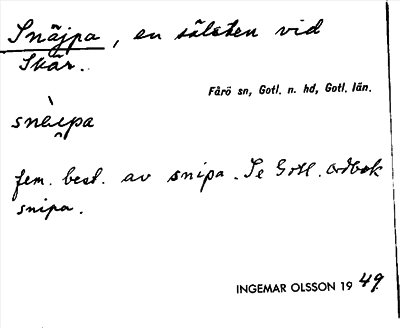 Snäjpa, en sälsten vid
Skär.
Fårö sn, Gotl. n. hd, Gotl. län.
snèi̯pa
fem. best. av snipa. Se Gotl. ordbok
snipa.
INGEMAR OLSSON 1949.